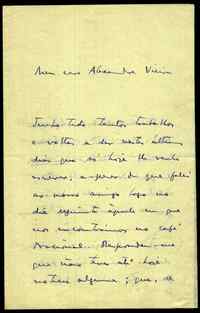 Meu caro Alexandre Vieira
Tenho tido tantos trabalhos
e voltas a dar nestes últimos
dias que só hoje lhe venho
escrever, apesar de que falei
ao nosso amigo Lopo no
dia seguinte àquele em que
nos encontrámos no café
Nacional. Respondeu-me
que não teve até hoje
notícia alguma; que,